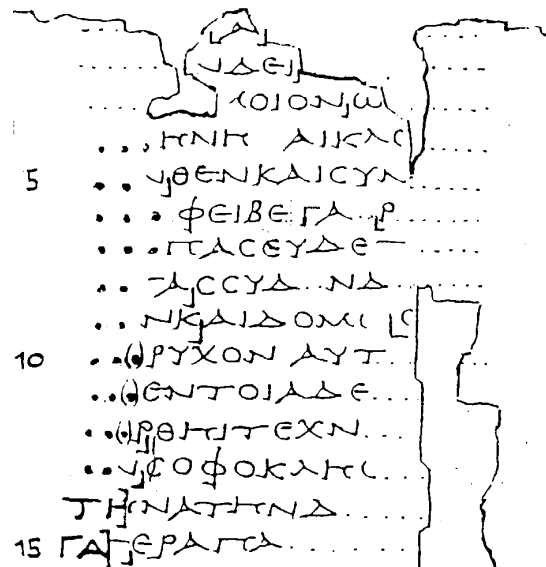 Α
ΔΕΙ
ΟΙΟΝ Ω
ΗΝΗ ΑΙΚΛ
5 ΘΕΝΚΑΙCΥΝ
ΦΕΙΒΕΓΑ Ρ
ΠΑCΕΥΔΕ
ΑCCΥΔ ΝΔ
ΝΚΑΙΔΟΜ
10 ΡΥΧΟΝ ΑΥΤ
ΕΝΤΟΙΑΔΕ
ΡΘΗΙΤΕΧΝ
CΟΦΟΚΛΗC
ΤΗ]ΝΑΤΗΝΔ
15 ΓΑ] ΕΡΑΠΑ